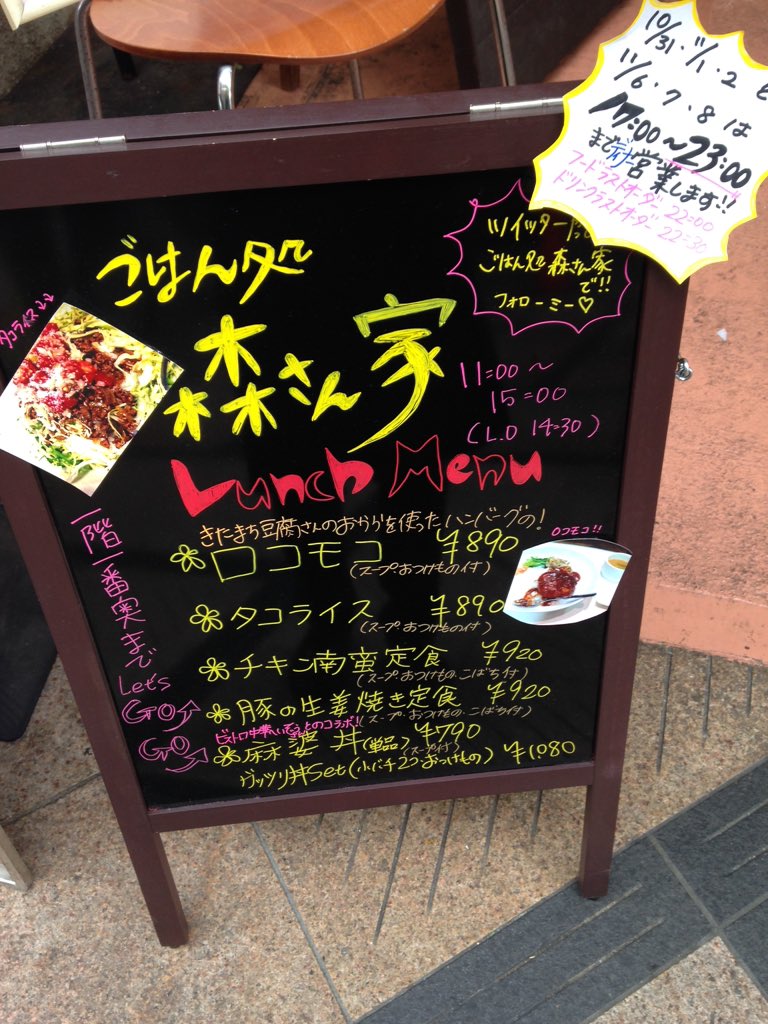 10/31・11/1・2 と
11/6・7・8 は
17:00〜23:00
まで 営業します!!
フードラストオーダー 22:00
ドリンクラストオーダー 22:30
ツイッター
ごはん処 森さん家
で!!
フォローミー♡
ごはん処
森さん家
タコライス
11:00〜
15:00
(L.O 14:30)
Lunch Menu
きたまち豆腐さんのおからを使ったハンバーグの!
ロコモコ ¥890
(スープおつけもの付)
ロコモコ!!
タコライス ¥890
(スープおつけもの付)
チキン南蛮定食 ¥920
(スープ・おつけもの・こばち付)
豚の生姜焼き定食 ¥920
(スープ・おつけもの・こばち付)
麻婆丼(単品) ¥790
(スープ付)
ガッツリ丼Set(小バチ2つおつけもの) ¥1080
一階一番奥まで
Let's
GO
GO